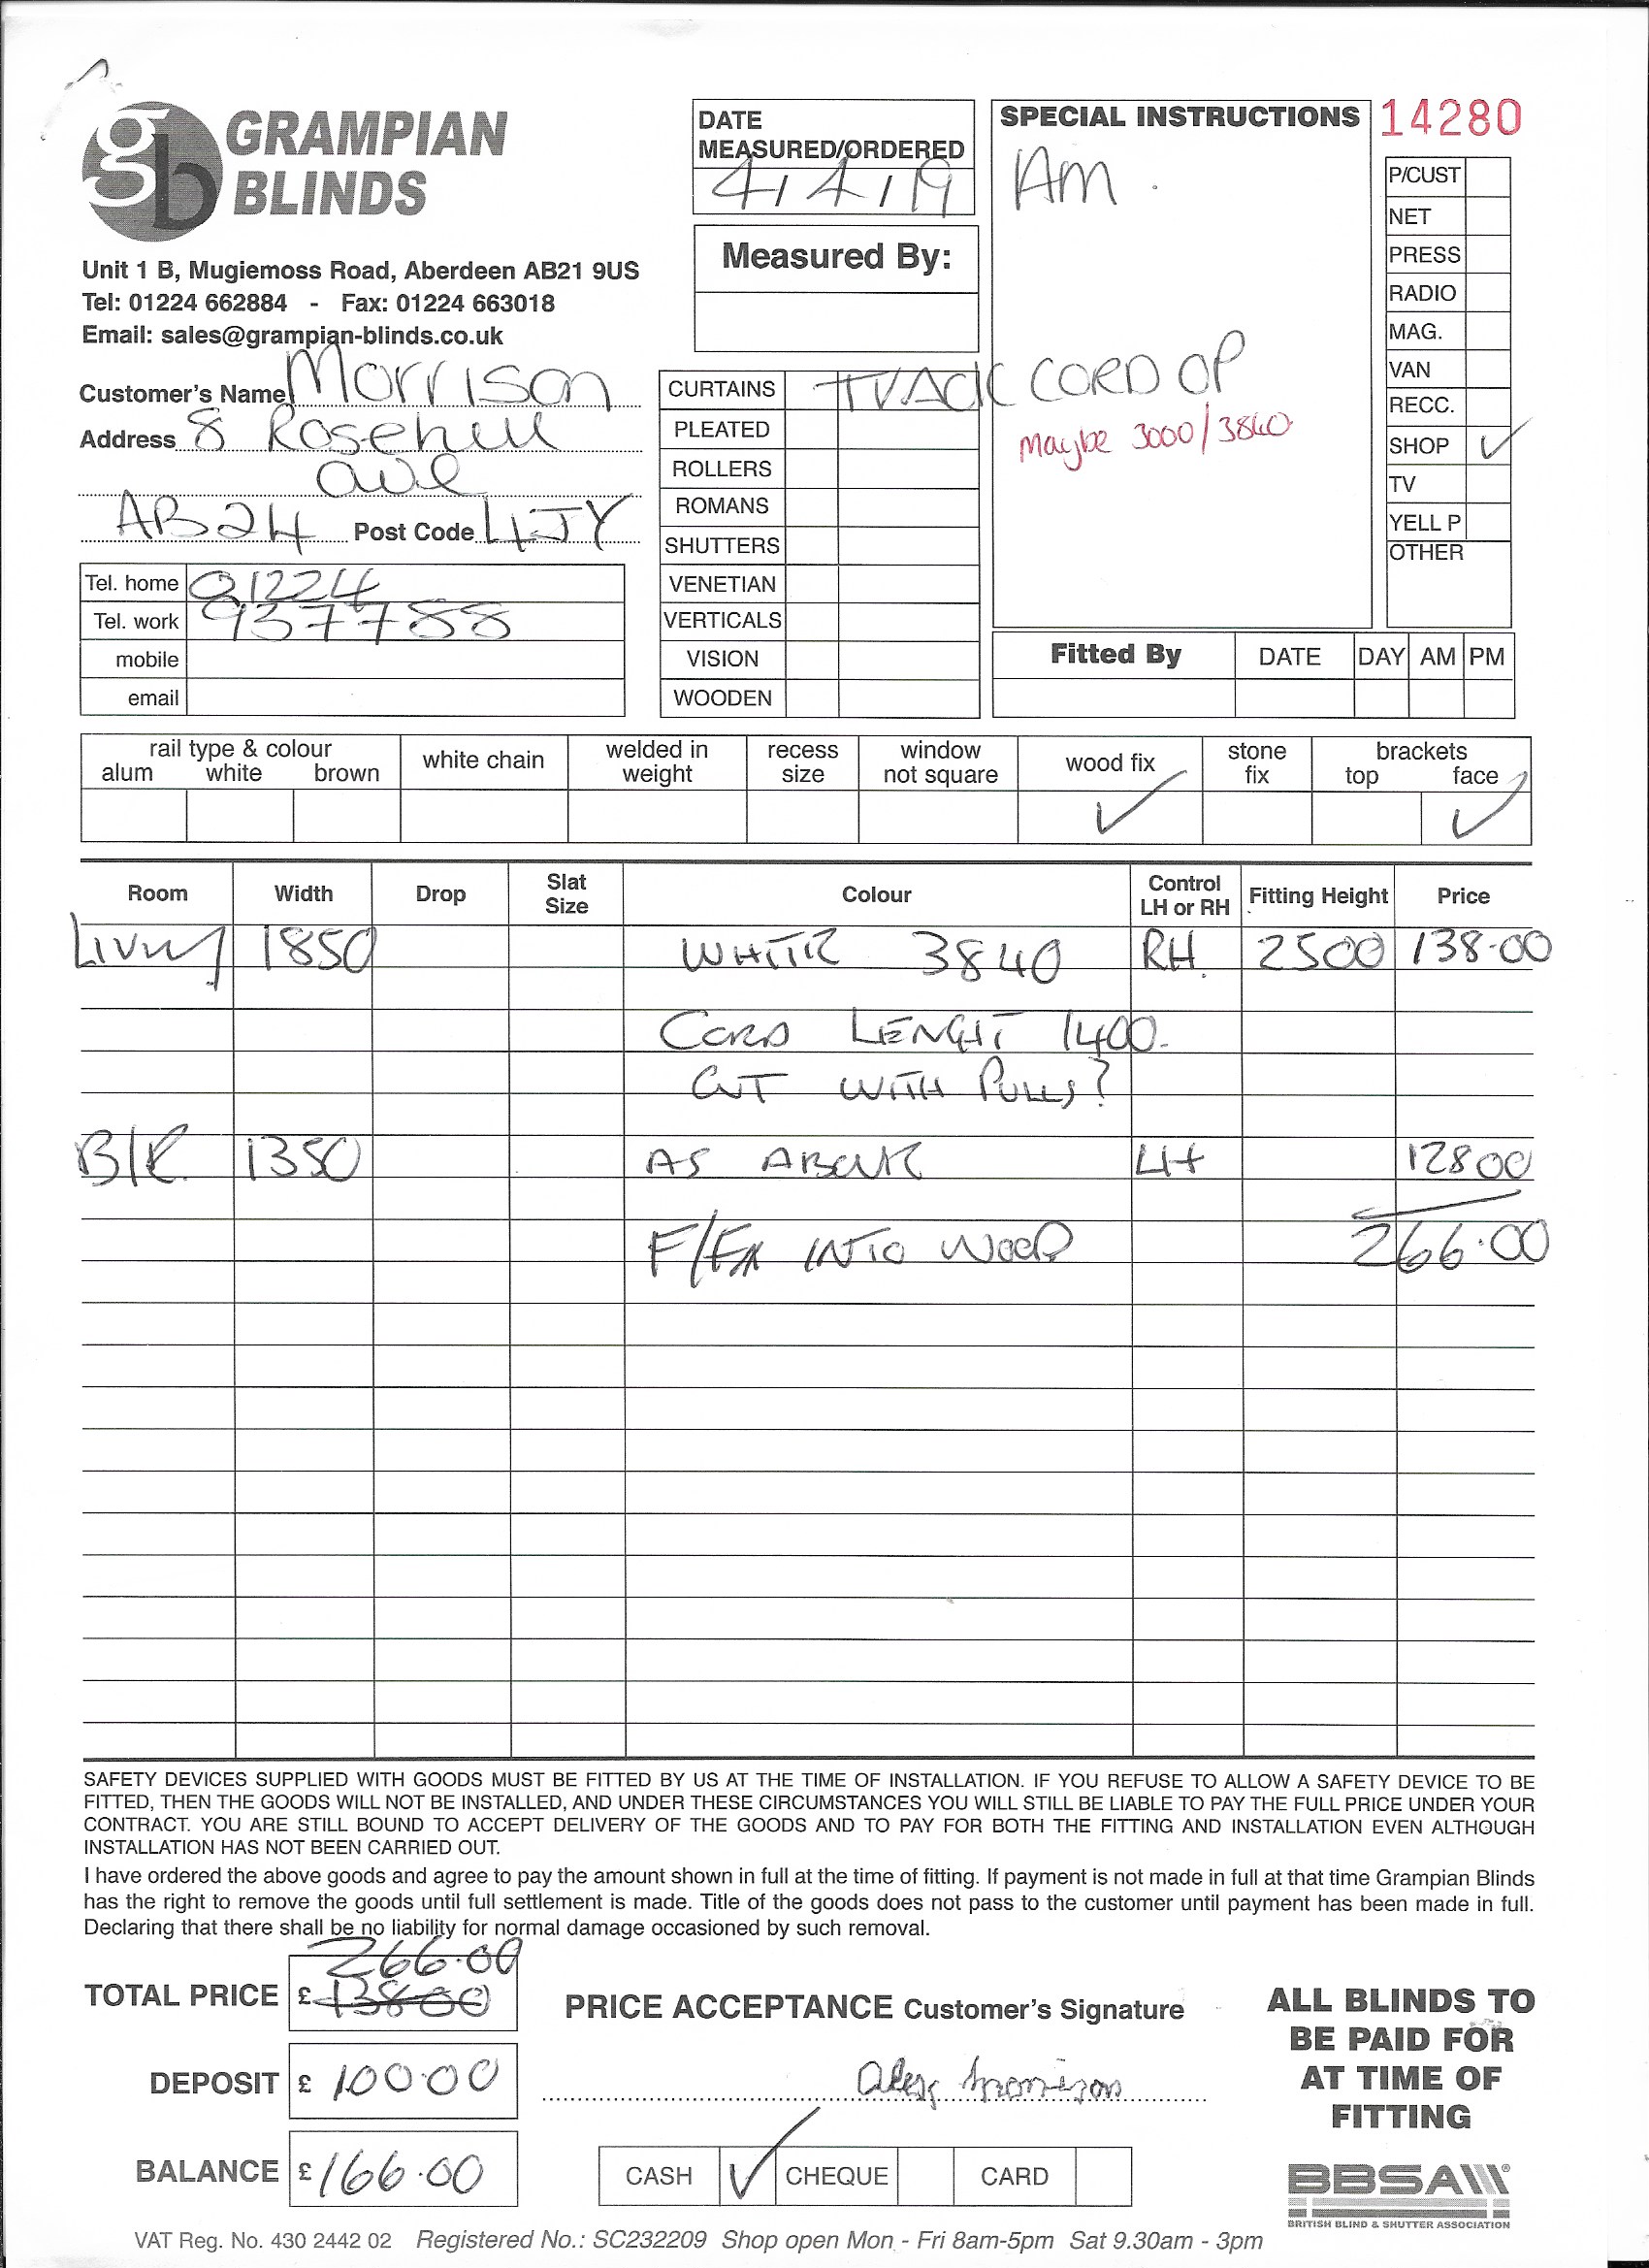 GRAMPIAN
BLINDS
Unit 1 B, Mugiemoss Road, Aberdeen AB21 9US
Tel: 01224 662884 - Fax: 01224 663018
Email: sales@grampian-blinds.co.uk
DATE
MEASURED/ORDERED
4/4/19
Measured By:
SPECIAL INSTRUCTIONS
AM.
14280
P/CUST
NET
PRESS
RADIO
MAG.
VAN
RECC.
SHOP ✓
TV
YELL P
OTHER
Customer's Name Morrison
Address 8 Rosehill
Ave
AB24 Post Code 4JY
Tel. home 01224
Tel. work 937788
mobile
email
CURTAINS TRACK CORD OP
Maybe 3000/3840
PLEATED
ROLLERS
ROMANS
SHUTTERS
VENETIAN
VERTICALS
VISION
WOODEN
Fitted By DATE DAY AM PM
rail type & colour
alum white brown
white chain
welded in weight
recess size
window not square
wood fix ✓
stone fix
brackets
top face ✓
Room Width Drop Slat Size Colour Control LH or RH Fitting Height Price
Living 1850 WHITE 3840 RH. 2500 138.00
CORD LENGHT 1400.
CUT WITH PULLS?
B/R. 1350 AS ABOVE LH 128 00
F/FIX INTO WOOD 266.00
SAFETY DEVICES SUPPLIED WITH GOODS MUST BE FITTED BY US AT THE TIME OF INSTALLATION. IF YOU REFUSE TO ALLOW A SAFETY DEVICE TO BE
FITTED, THEN THE GOODS WILL NOT BE INSTALLED, AND UNDER THESE CIRCUMSTANCES YOU WILL STILL BE LIABLE TO PAY THE FULL PRICE UNDER YOUR
CONTRACT. YOU ARE STILL BOUND TO ACCEPT DELIVERY OF THE GOODS AND TO PAY FOR BOTH THE FITTING AND INSTALLATION EVEN ALTHOUGH
INSTALLATION HAS NOT BEEN CARRIED OUT.
I have ordered the above goods and agree to pay the amount shown in full at the time of fitting. If payment is not made in full at that time Grampian Blinds
has the right to remove the goods until full settlement is made. Title of the goods does not pass to the customer until payment has been made in full.
Declaring that there shall be no liability for normal damage occasioned by such removal.
266.00
TOTAL PRICE £ 138 00
DEPOSIT £ 100.00
BALANCE £ 166.00
PRICE ACCEPTANCE Customer's Signature
Alex Morrison
CASH ✓ CHEQUE CARD
ALL BLINDS TO
BE PAID FOR
AT TIME OF
FITTING
BBSA
BRITISH BLIND & SHUTTER ASSOCIATION
VAT Reg. No. 430 2442 02 Registered No.: SC232209 Shop open Mon - Fri 8am-5pm Sat 9.30am - 3pm